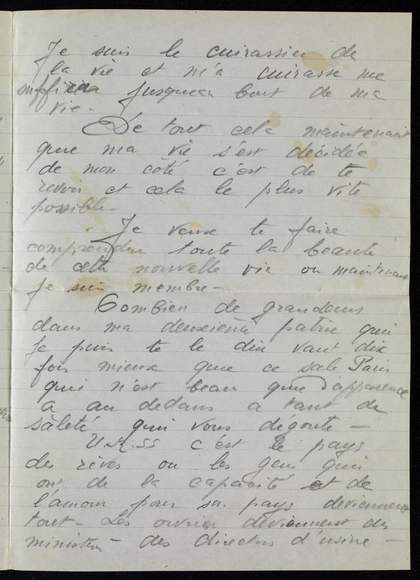 Je suis le cuirassier de
la vie et m'a cuirasse me
suffira jusqueau bout de ma
vie -
De tout cela maintenant
que ma vie s'est décidée
de mon côté c'est de te
revoir et cela le plus vite
possible -
Je veux te faire
comprendre toute la beauté
de cette nouvelle vie ou maintenant
je suis membre -
Combien de grandeurs
dans ma deuxième patrie qui
je puis te le dire vaut dix
fois mieux que ce sale Paris
qui n'est beau que d'apparence
a au dedans a tant de
saleté qui vous dégoute -
U.R.SS c'est le pays
des rèves ou les gens qui
ont de la capacité et de
l'amour pour sa pays deviennent
tout - Les ouvrier deviennent des
ministres - des directeurs d'usine -